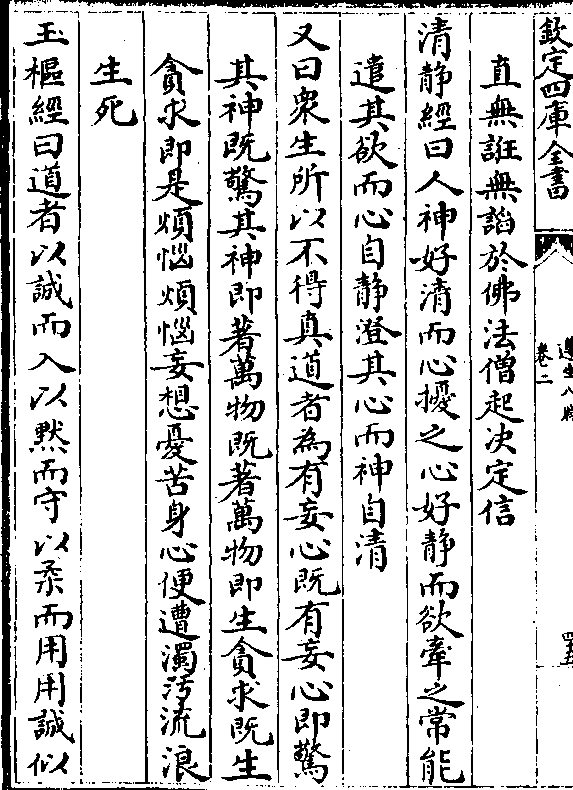 欽定四庫全書
遵生八牋
卷二
四五
直無誑無諂於佛法僧起決定信
清静經曰人神好清而心擾之心好静而欲牽之常能
遣其欲而心自静澄其心而神自清
又曰衆生所以不得真道者為有妄心既有妄心即驚
其神既驚其神即著萬物既著萬物即生貪求既生
貪求即是煩惱煩惱妄想憂苦身心便遭濁污流浪
生死
玉樞經曰道者以誠而入以黙而守以柔而用用誠似